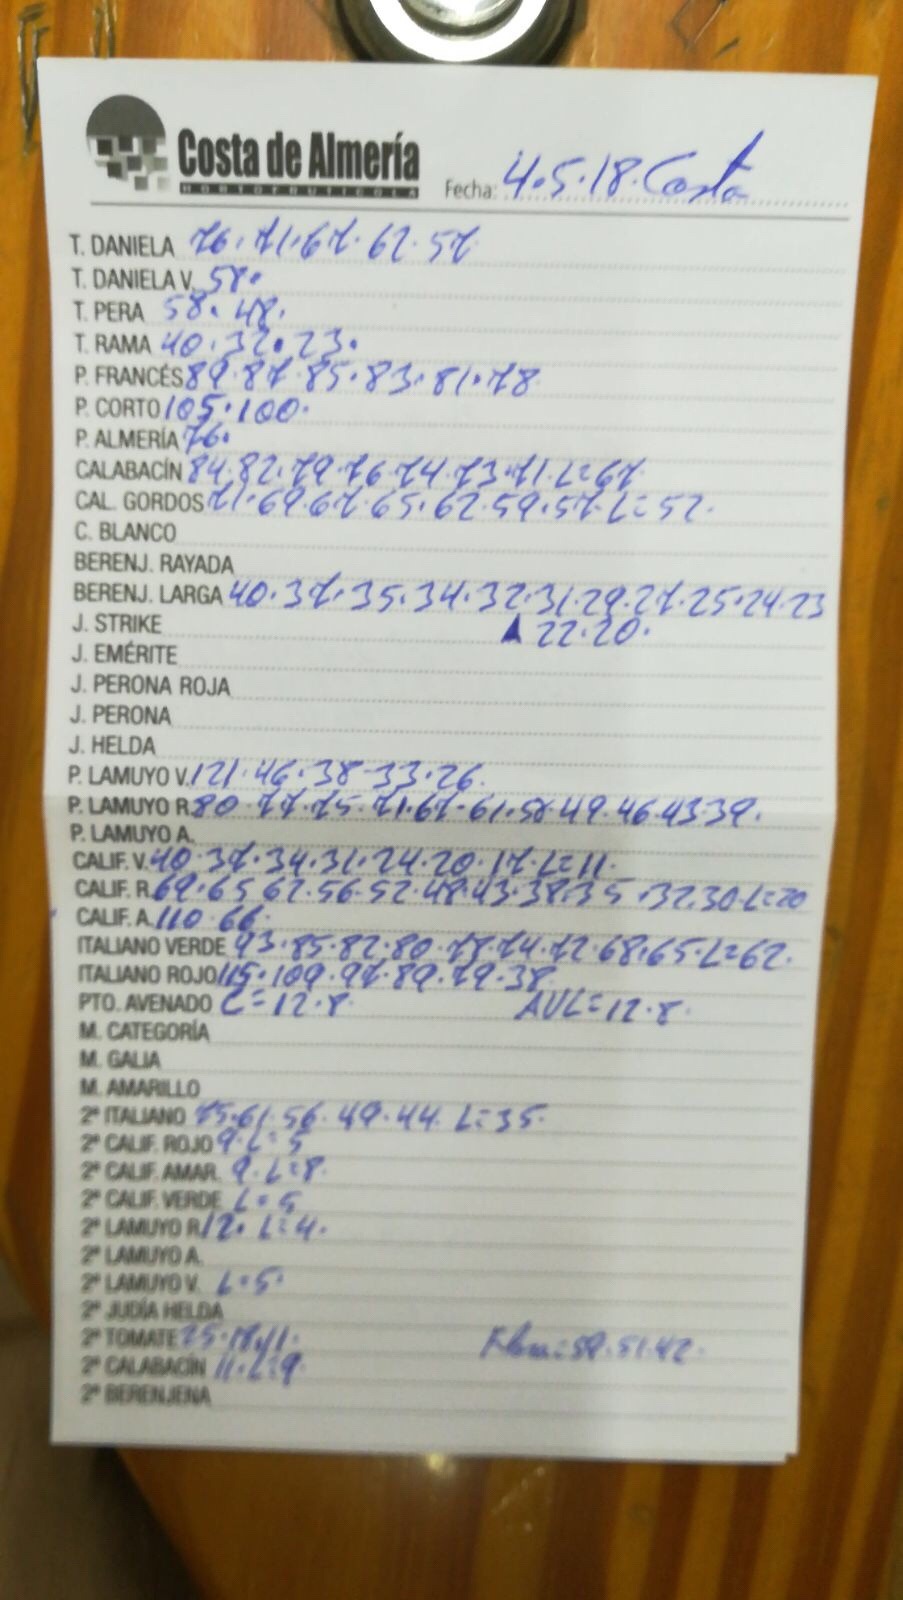 Costa de Almería
HORTOFRUTICOLA
Fecha: 4.5.18. Costa
T. DANIELA 76.71.67.62.57
T. DANIELA V. 57.
T. PERA 58.48.
T. RAMA 40.32.23.
P. FRANCÉS 89.87.85.83.81.78
P. CORTO 105.100.
P. ALMERÍA 76.
CALABACÍN 84.82.79.76.74.73.71.L=67.
CAL. GORDOS 71.69.67.65.62.59.57.L=52.
C. BLANCO
BERENJ. RAYADA
BERENJ. LARGA 40.37.35.34.32.31.29.27.25.24.23
J. STRIKE 22.20.
J. EMÉRITE
J. PERONA ROJA
J. PERONA
J. HELDA
P. LAMUYO V. 121.46.38-33.26.
P. LAMUYO R. 80.77.75.71.67.61.58.49.46.43.39.
P. LAMUYO A.
CALIF. V. 40.37.34.31.24.20.17.L=11.
CALIF. R. 69.65.62.56.52.48.43.38.35.32.30.L=20
CALIF. A. 110.66.
ITALIANO VERDE 93.85.82.80.78.74.72.68.65.L=62.
ITALIANO ROJO 115.109.97.89.79.38.
PTO. AVENADO L=12.8. AVL=12.8.
M. CATEGORÍA
M. GALIA
M. AMARILLO
2ª ITALIANO 75.61.56.49.44.L=35.
2ª CALIF. ROJO 9.L=5
2ª CALIF. AMAR. 9.L=8.
2ª CALIF. VERDE L=5
2ª LAMUYO R. 12. L=4.
2ª LAMUYO A.
2ª LAMUYO V. L=5.
2ª JUDÍA HELDA
2ª TOMATE 25.18.11. =59.51.42.
2ª CALABACÍN 11.L=9
2ª BERENJENA